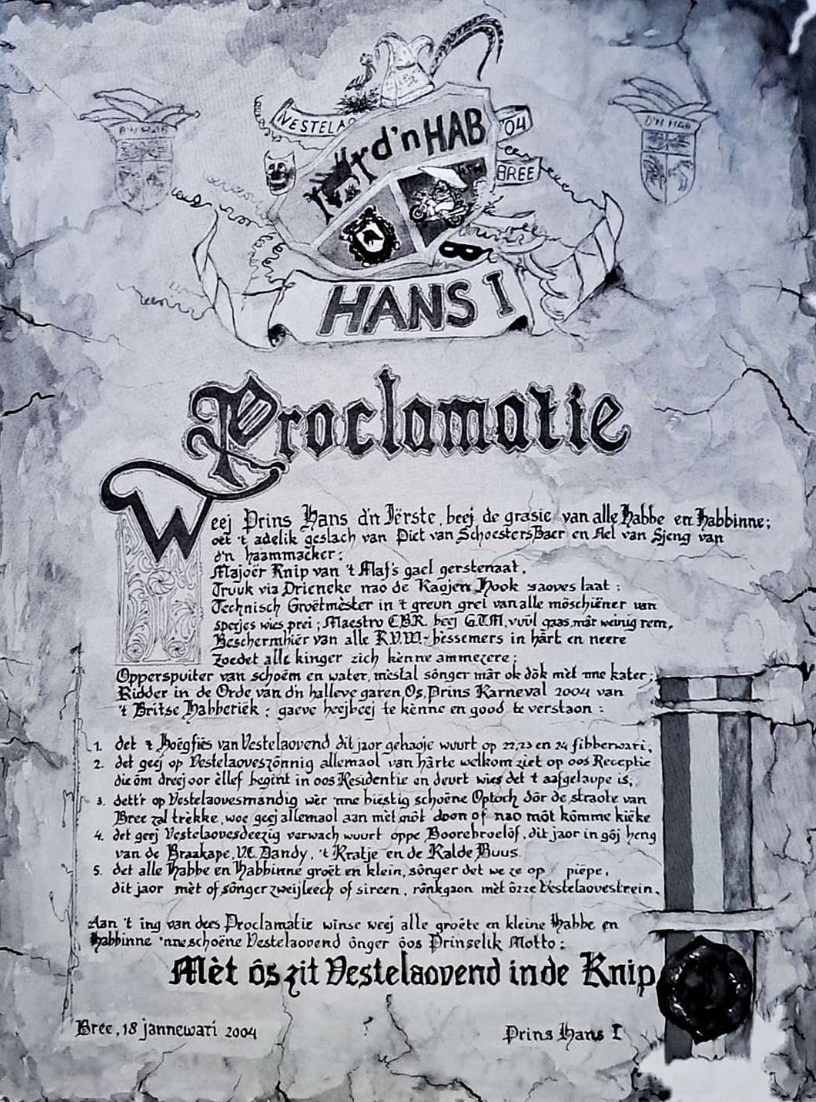 D'N HAB
VESTELAO
'04
d'n HAB
BREE
D'N HAB
HANS I
Proclamatie
Weej Prins Hans d'n Iërste, beej de grasie van alle Habbe en Habbinne;
oet 't adelik geslach van Piet van Schoesters Baer en Ael van Sjeng van
d'n haammaeker;
Majoër Knip van 't Maf's gael gerstenaat,
Truuk via Drieneke nao de Kaojen Hook saoves laat;
Technisch Groëtmèster in 't greun grei van alle möschiëner van
speejes wies prei; Maestro C.B.R. beej G.T.M, vuul gaas, mâr weinig rem,
Beschermhiër van alle R.V.W-bessemers in hârt en neere
Zoedet alle kinger zich kènne ammezere;
Opperspuiter van schoëm en water, mèstal sônger mâr ok dök mèt nne kater;
Ridder in de Orde van d'n halleve garen Os, Prins Karneval 2004 van
't Britse Habberiëk; gaeve heejbeej te kènne en good te verstaon:
1. det 't Hoëgfiës van Vestelaovend dit jaor gehaoje wuurt op 22, 23 en 24 fibberwari;
2. det geej op Vestelaoveszônnig allemaol van hârte welkom ziet op oos Receptie
die öm dreej oor èllef begint in oos Residentie en deurt wies det 't aafgelaupe is;
3. dett'r op Vestelaovesmandig wèr 'nne biëstig schoëne Optoch dôr de straote van
Bree zal trèkke, woe geej allemaol aan mèt môt doon of nao môt kômme kiëke
4. det geej Vestelaovesdeezig verwach wuurt oppe Boorebroelof, dit jaor in gôj heng
van de Braakape, V.C. Dandy, 't Kratje en de Kalde Buus.
5. det alle Habbe en Habbinne groët en klein, sônger det we ze op piëpe,
dit jaor mèt of sônger zweijleech of sireen, rônkgaon mèt ôzze Vestelaovestrein.
Aan 't ing van dees Proclamatie winse weej alle groëte en kleine Habbe en
Habbinne 'nne schoëne Vestelaovend ônger ôos Prinselik Motto:
Mèt ôs zit Vestelaovend in de Knip
Bree, 18 jannewari 2004
Prins Hans I